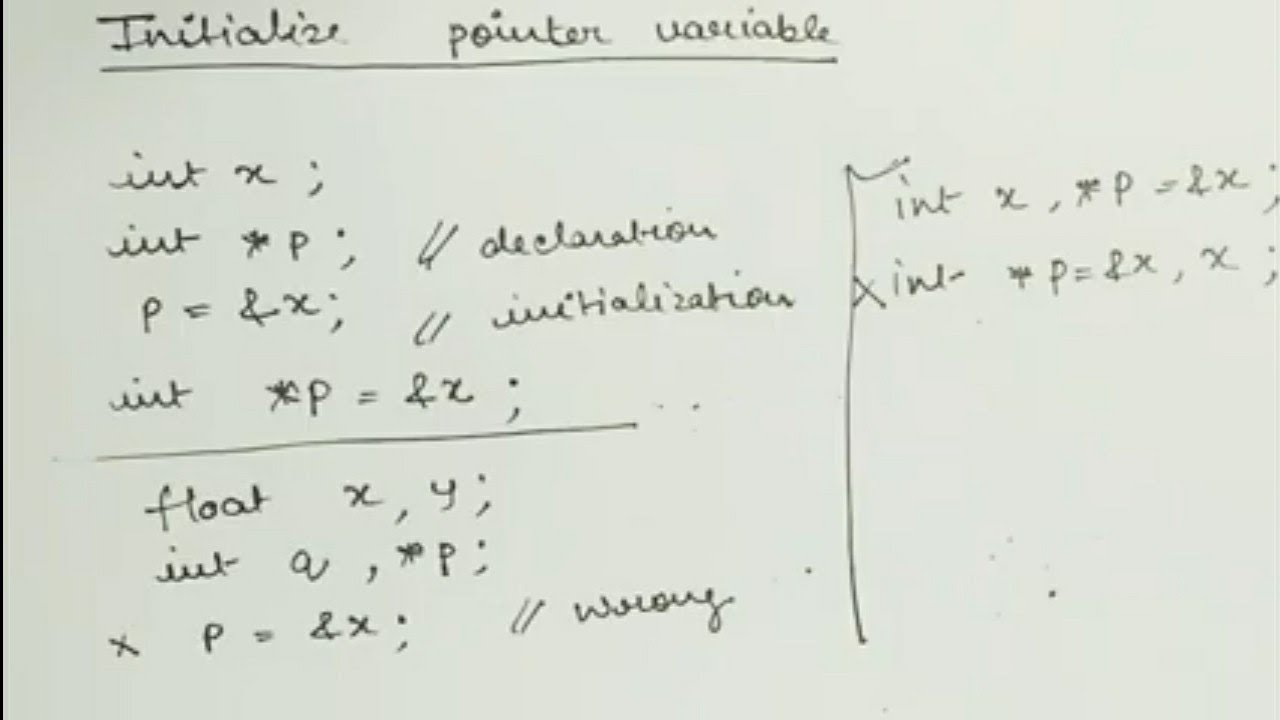 Initialize pointer variable
int x ;
int *p ; // declaration
p = &x ; // initialization
int *p = &x ;
float x , y ;
int a , *p ;
x p = &x ; // wrong
✓ int x , *p = &x ;
x int *p = &x , x ;